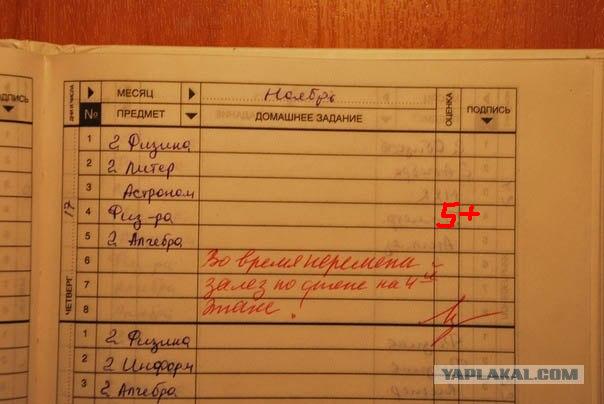 ДПИСЬ
ДНИ И ЧИСЛА
МЕСЯЦ Ноябрь ОЦЕНКА ПОДПИСЬ
№ ПРЕДМЕТ ДОМАШНЕЕ ЗАДАНИЕ
ЧЕТВЕРГ 17
1 2 Физика
2 2 Литер
3 Астроном
4 Физ-ра 5+
5 2 Алгебра
6 Во время перемены
7 залез по стене на 4ый
8 этаж.
1 2 Физика
2 2 Информ
3 2 Алгебра
YAPLAKAL.COM